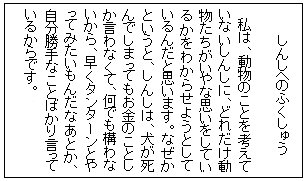 しんしへのふくしゅう
私は、動物のことを考えて
いないしんしに、どれだけ動
物たちがいやな思いをしてい
るかをわからせようとして
いるんだと思います。なぜか
というと、しんしは、犬が死
んでしまってもお金のことし
か言わなくて、何でも構わな
いから、早くタンターンとや
ってみたいもんだなあとか、
自分勝手なことばかり言って
いるからです。